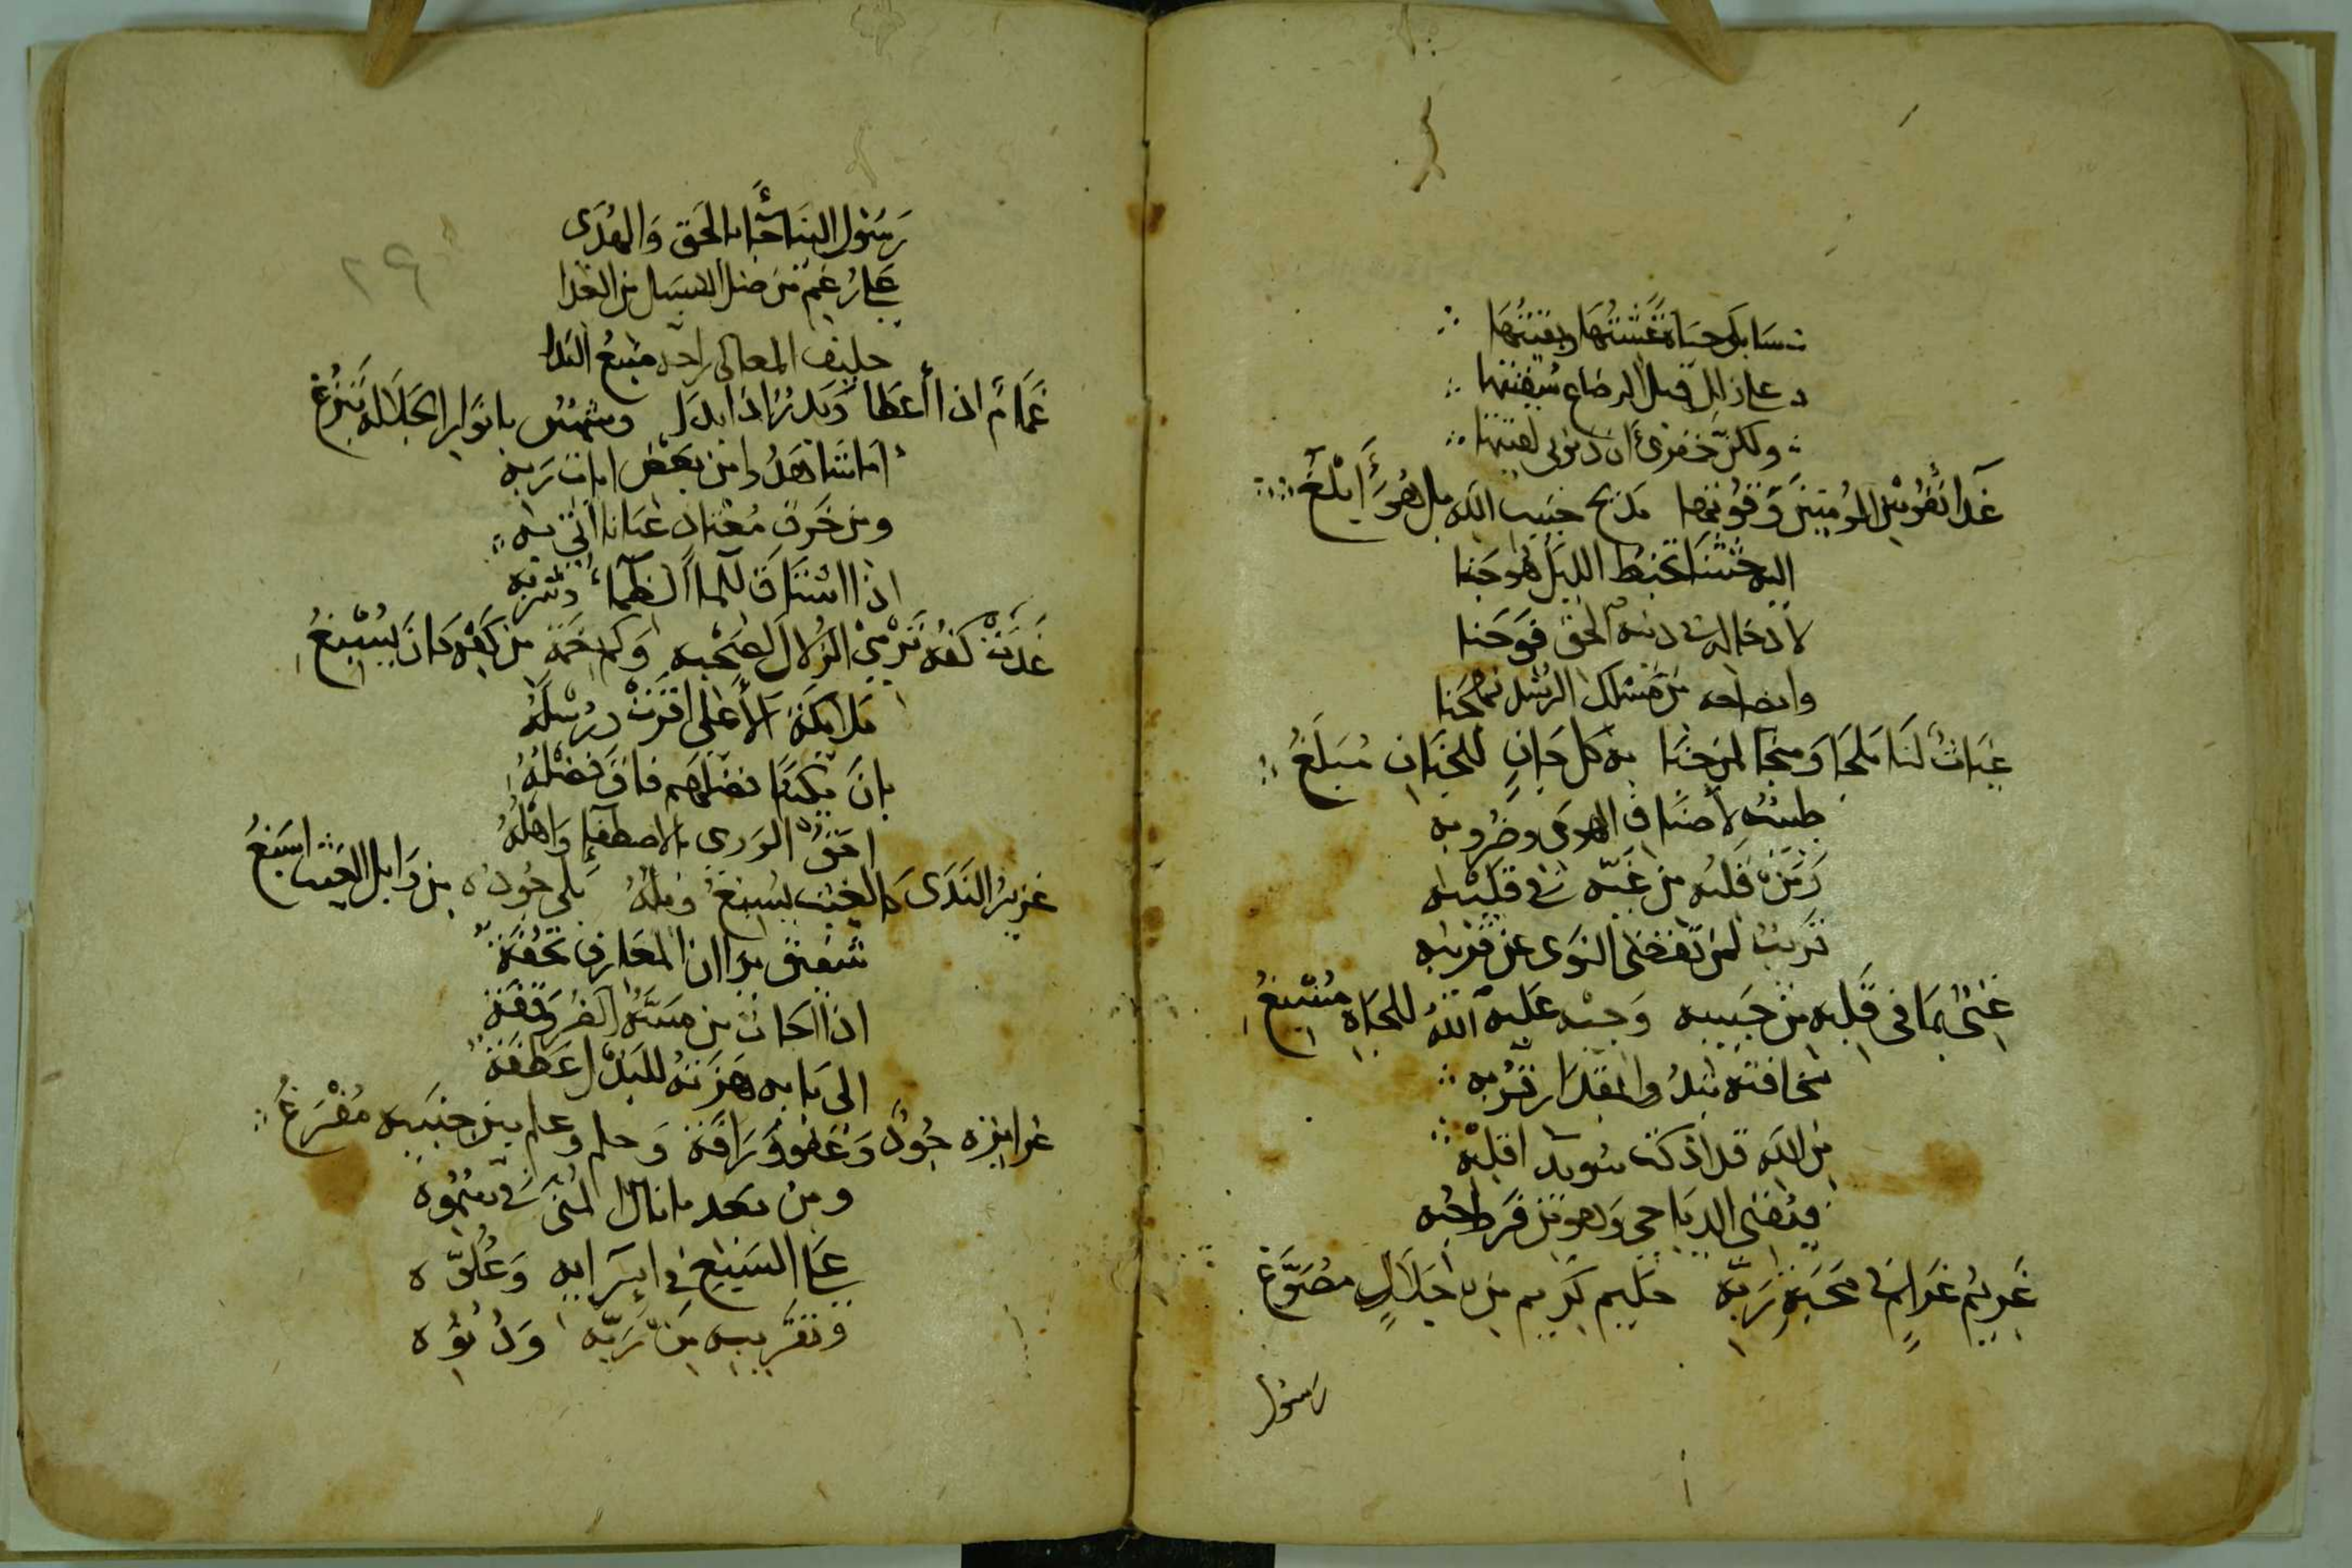 سابكي حياة عشتها وبقيتها
على زلل قبل الرضاع سقيتها
ولكن خفرى أن ذنوبي لقيتها
غدا نفوس المؤمنين وقوتها مديح حبيب الله بل هو أبلغ
اليه حثثنا نخبط الليل هوجنا
لادخاله في دينه الحق فوجنا
وايضاحه من مسلك الرشد نهجنا
غياث لنا ملجا ومنجا لمن جنا به كل جان للجنان مبلغ
طبيب لأصناف الهوى وضروبه
زمن قلبه من غيه في قليبه
قريب لمن تفضى النوى عن قريبه
غنى بما في قلبه من حبيبه وجيه عليه الله للجاه مسبغ
مخافته تبدو والمقدار قربه
من الله قد اذكت سويد اقلبه
فيفنى الدياجي وهو من فرط حبه
غريم غرام في محبة ربه حليم كريم من اجلال مصوغ
رسول
٢٩
رسول الينا جا بالحق والهدى
على رغم من ضل السبيل من العدا
حليف المعالي راحه منبع الندا
غمام اذا أعطا وبدر اذا بدا وشمس بانوار الجلالة تبزغ
اما شاهدوا من بعض ايات ربه
ومن خرق معتاد عيانا اتى به
اذا اشتاق للماء الظماء وشربه
غدت كفه ترمي الزلال لصحبه وكم نعمة من كفه كان يسبغ
ملائكة الأعلى اقرت ورسله
بان نبينا فضلهم فاق فضله
احق الورى بالاصطفاء واهله
غزير الندى كالغيث يسبغ وبله بلى جوده من وابل الغيث اسبغ
شفيق يرا ان المعارف تحفة
اذا الجات من مسه الضر وقفة
الى بابه هزته للبذل عطفة
غرائزه جود وعفو ورافة وحلم وعلم بين جنبيه مفرغ
ومن بعد ما نال المنى في سموه
على السبع في اسرائه وعلوه
وتقريبه من ربه ودنوه